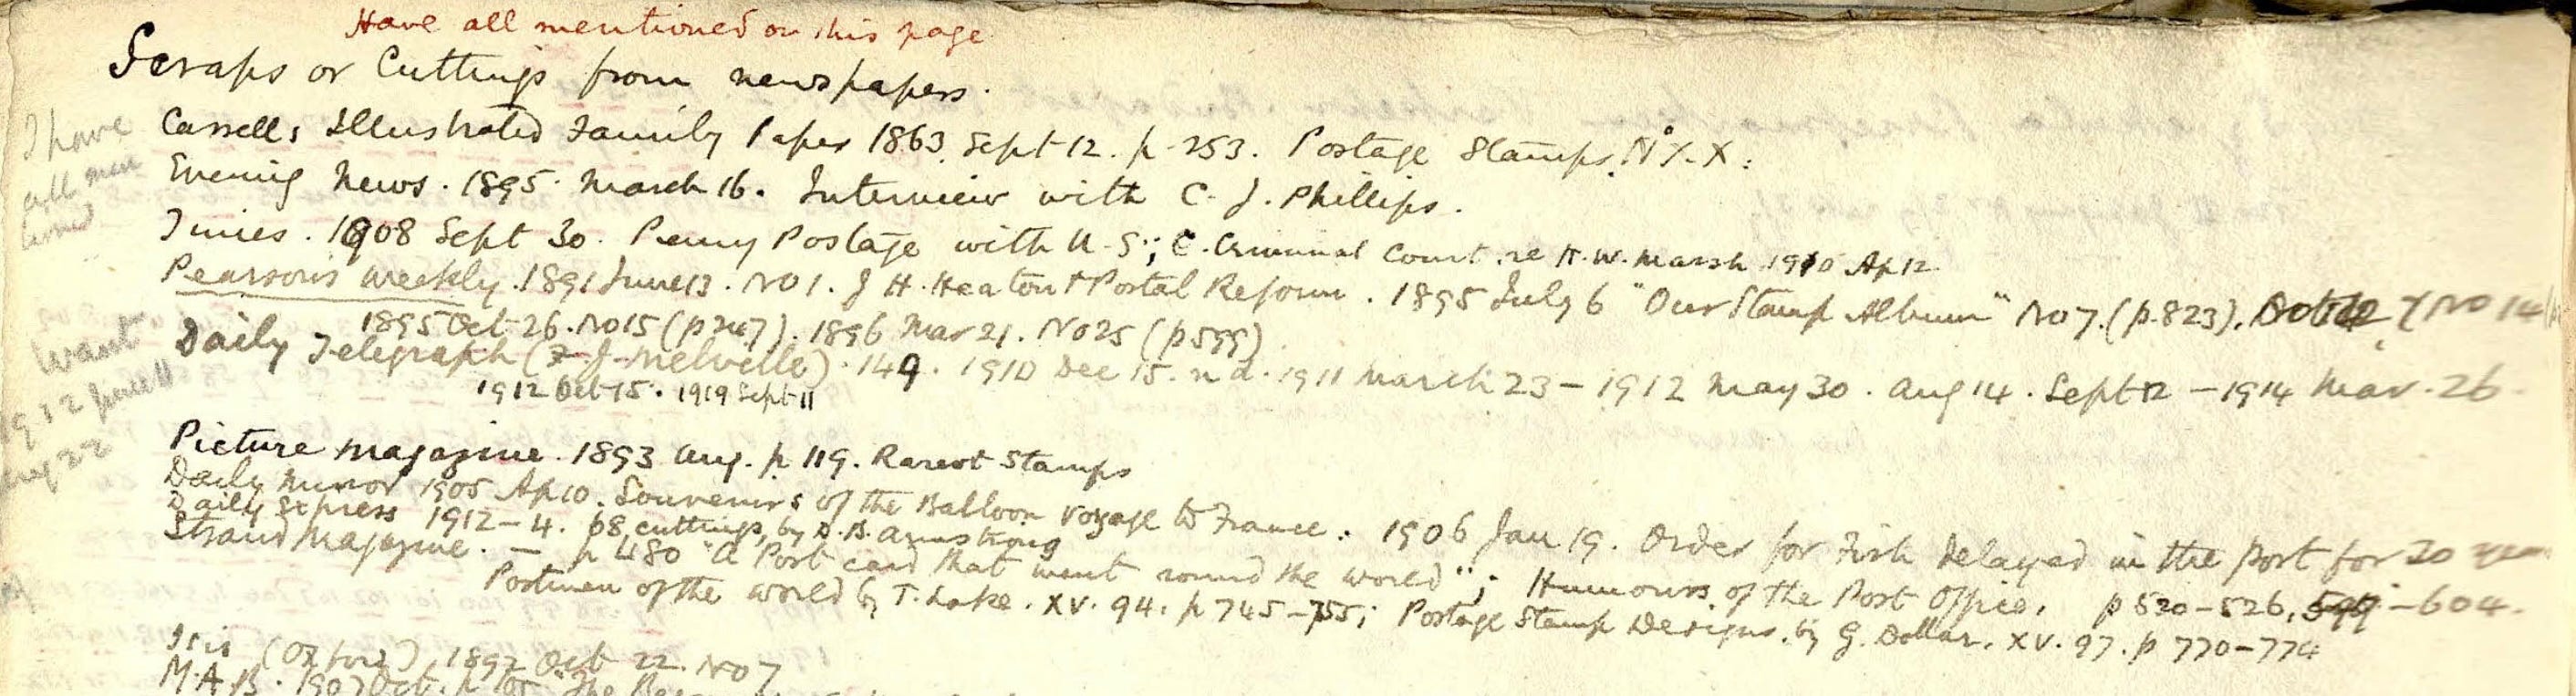 Have all mentioned on this page
Scraps or Cuttings from newspapers.
I have
all men
tioned
Cassells Illustrated Family Paper 1863 Sept 12. p 253. Postage Stamps. No X.
Evening News. 1895. March 16. Interview with C. J. Phillips.
Times. 1908 Sept 30. Penny Postage with U.S.; C. Criminal Court. re H. W. Marsh 1910 Ap 12
Pearson's Weekly. 1891 June 13. No 1. J H. Heaton & Postal Reform. 1895 July 6 "Our Stamp Album" No 7. (p. 823). No 14
1895 Oct 26. No 15 (p 247). 1896 Mar 21. No 25 (p 599)
Want
1912 June 11
Aug 22
Daily Telegraph (F. J. Melville). 149. 1910 Dec 15. n d. 1911 March 23 - 1912 May 30. Aug 14. Sept 12 - 1914 Mar. 26
1912 Oct 15. 1919 Sept 11
Picture Magazine. 1893 Aug. p 119. Rarest Stamps
Daily Mirror 1905 Ap 10. Souvenirs of the Balloon voyage to France. 1906 Jan 19. Order for Fish Delayed in the Post for 20 years
Daily Express 1912-4. 68 cuttings, by D. B. Armstrong
Strand Magazine. - p 480 "A Post card that went round the world"; Humours of the Post Office. p 520-526, 599-604.
Postmen of the world by T. Lake. XV. 94. p 745-755; Postage Stamp Designs. by G. Dollar. XV. 97. p 770-774
Isis (Oxford) 1892 Oct 22. No 7
M.A.B. 1907 Oct. p "The